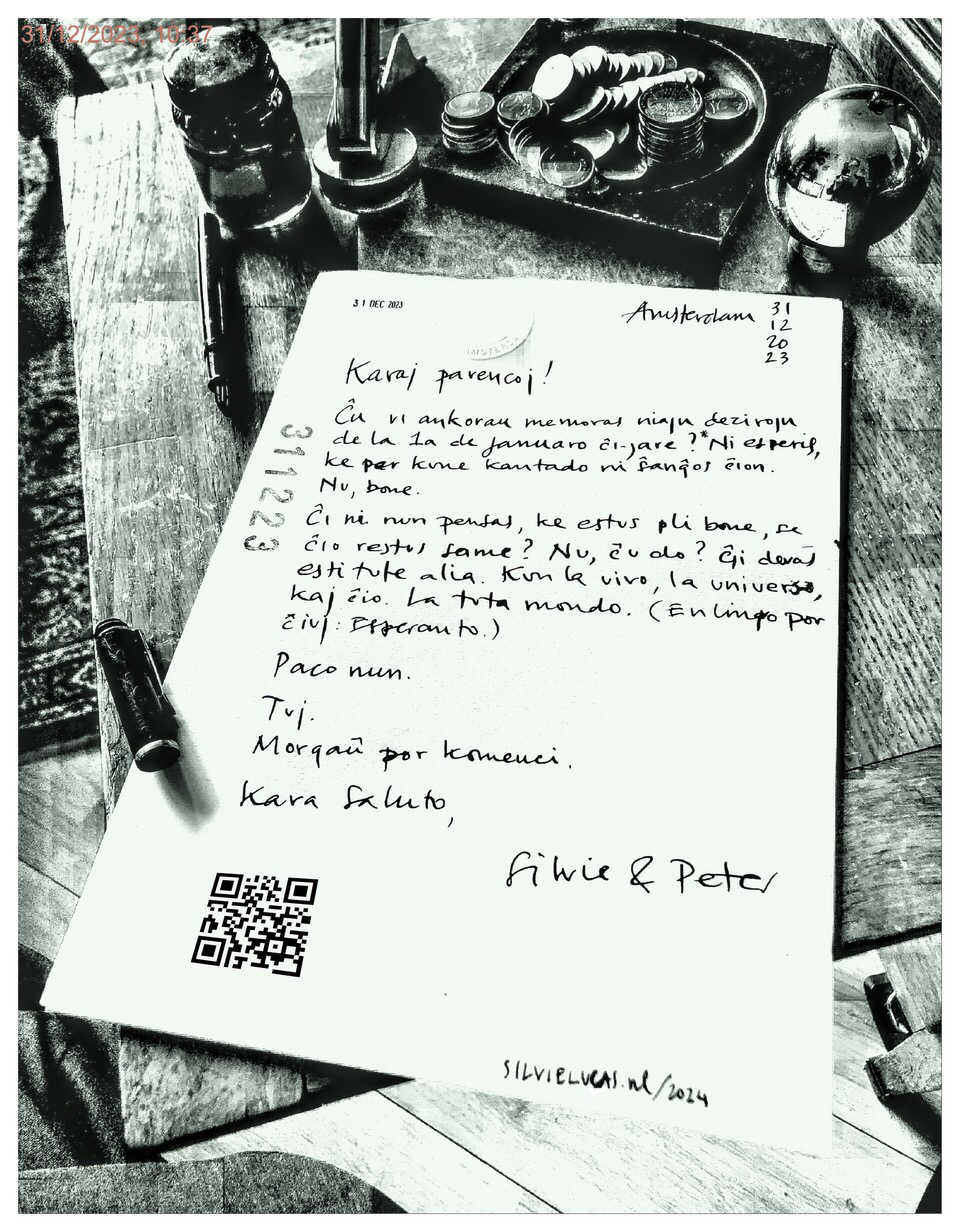 31/12/2023, 10:37
31 DEC 2023
Amsterdam 31
12
20
23
Karaj parencoj!
Ĉu vi ankoraŭ memoras niajn dezirojn
de la 1a de januaro ĉi-jare?* Ni esperis,
ke per kune kantado ni ŝanĝos ĉion.
Nu, bone.
Ĉi ni nun pensas, ke estus pli bone, se
ĉio restus same? Nu, ĉu do? Ĝi devas
esti tute alia. Kun la vivo, la universo,
kaj ĉio. La tuta mondo. (En lingvo por
ĉiuj: Esperanto.)
Paco nun.
Tuj.
Morgaŭ por komenci.
Kara Saluto,
Silvie & Peter
311223
SILVIELUCAS.nl/2024